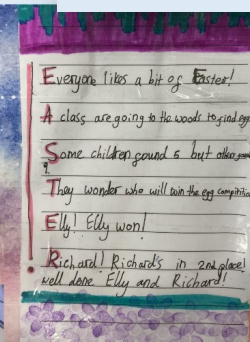 Everyone likes a bit of Easter!
A class are going to the woods to find egg
Some children found 5 but other
9.
They wonder who will win the egg compitition
Elly! Elly won!
Richard! Richard's in 2nd place!
well done Elly and Richard!